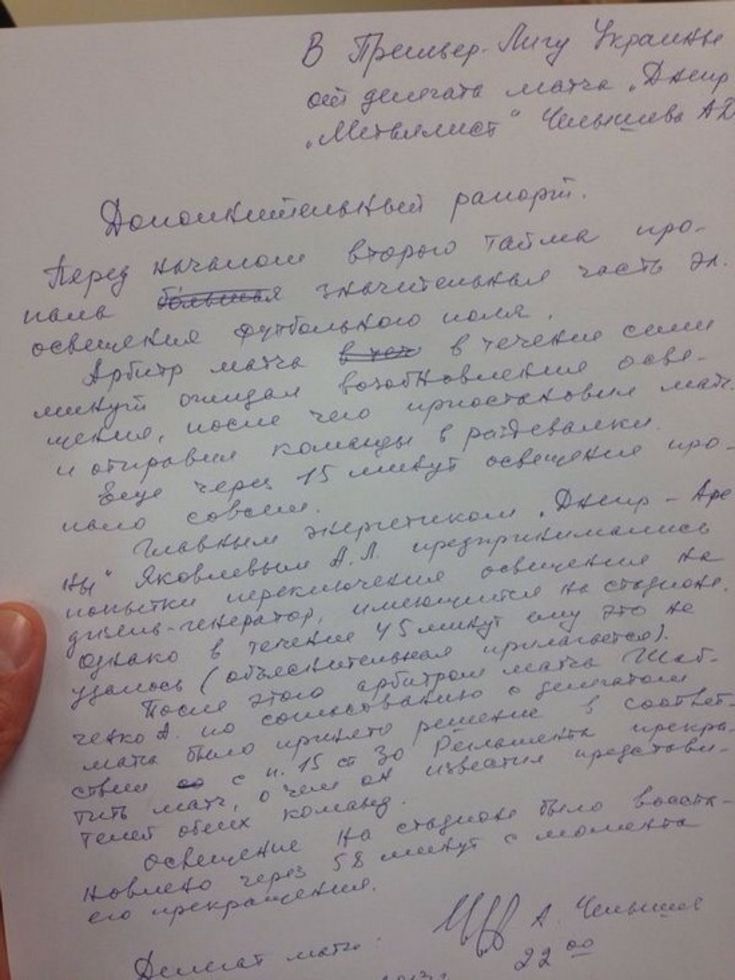 В Премьер-Лигу Украины
от делегата матча „Днепр
„Металлист" Чемышева АД
Дополнительный рапорт.
Перед началом второго тайма про-
пала большая значительная часть эл.
освещения футбольного поля.
Арбитр матча в теч в течение семи
минут ожидал возобновления осве-
щения, после чего приостановил матч
и отправил команды в раздевалки.
Еще через 15 минут освещение про-
пало совсем.
Главным энергетиком „Днепр-Аре
ны" Яковлевым А.Л. предпринимались
попытки переключения освещения на
дизель-генератор, имеющийся на стадионе.
Однако в течение 45 минут ему это не
удалось (объяснительная прилагается).
После этого арбитром матча Шаб-
ченко А. по согласованию с делегатом
матча было принято решение в соответ-
ствии со с п. 15 ст 30 Регламента прекра-
тить матч, о чем он известил представи-
телей обеих команд.
Освещение на стадионе было восста-
новлено через 58 минут с момента
его прекращения.
Делегат матча: А. Чемышев
22 00